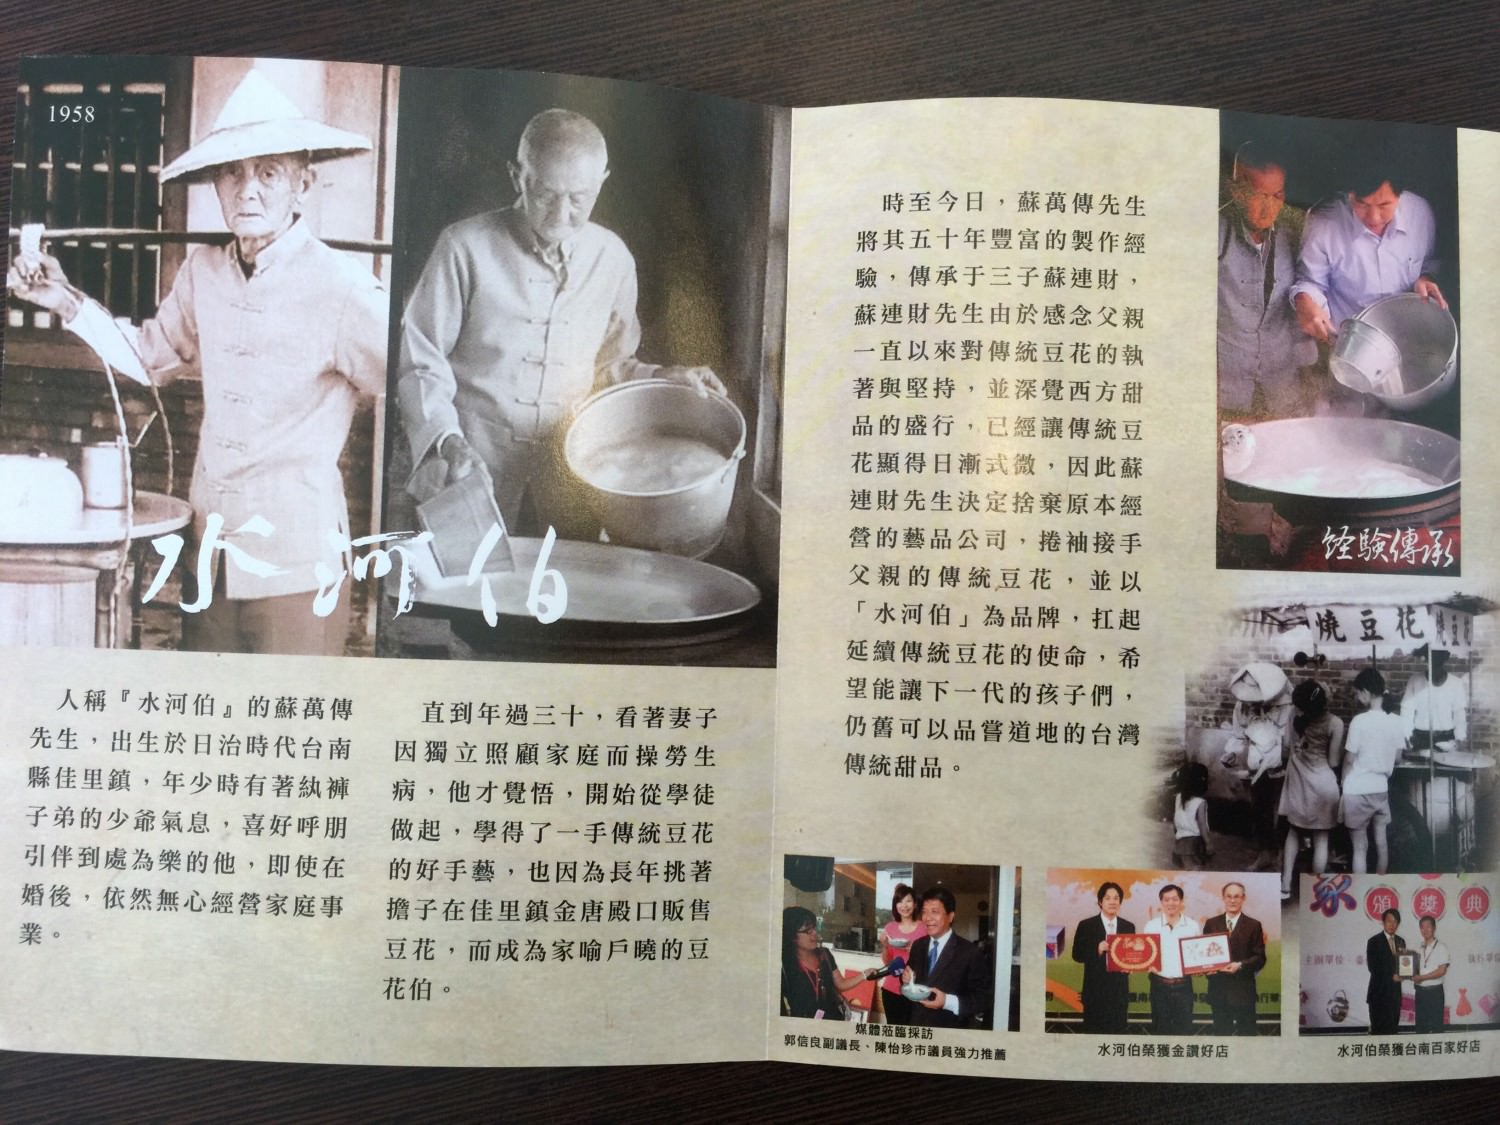 1958
水河伯
人稱『水河伯』的蘇萬傳
先生，出生於日治時代台南
縣佳里鎮，年少時有著紈褲
子弟的少爺氣息，喜好呼朋
引伴到處為樂的他，即使在
婚後，依然無心經營家庭事
業。
直到年過三十，看著妻子
因獨立照顧家庭而操勞生
病，他才覺悟，開始從學徒
做起，學得了一手傳統豆花
的好手藝，也因為長年挑著
擔子在佳里鎮金唐殿口販售
豆花，而成為家喻戶曉的豆
花伯。
時至今日，蘇萬傳先生
將其五十年豐富的製作經
驗，傳承于三子蘇連財，
蘇連財先生由於感念父親
一直以來對傳統豆花的執
著與堅持，並深覺西方甜
品的盛行，已經讓傳統豆
花顯得日漸式微，因此蘇
連財先生決定捨棄原本經
營的藝品公司，捲袖接手
父親的傳統豆花，並以
「水河伯」為品牌，扛起
延續傳統豆花的使命，希
望能讓下一代的孩子們，
仍舊可以品嘗道地的台灣
傳統甜品。
経験傳承
燒豆花 燒豆花
媒體蒞臨採訪
郭信良副議長、陳怡珍市議員強力推薦
水河伯榮獲金讚好店
頒獎典
主辦單位
執行單位
水河伯榮獲台南百家好店